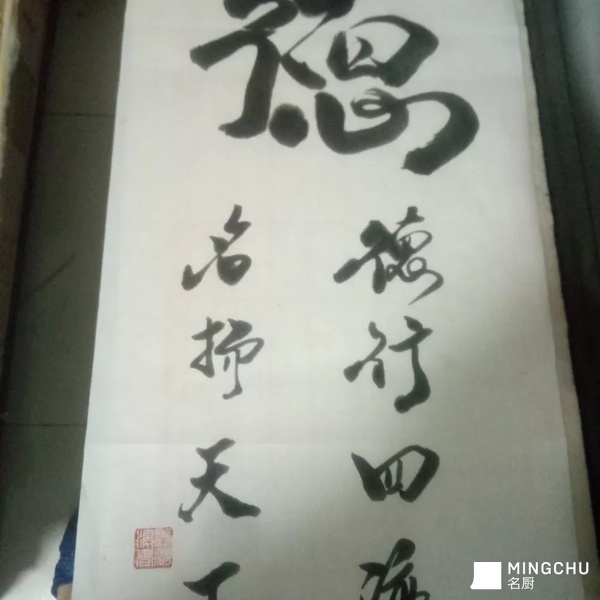 德
德行四海
名扬天下
MINGCHU
名厨